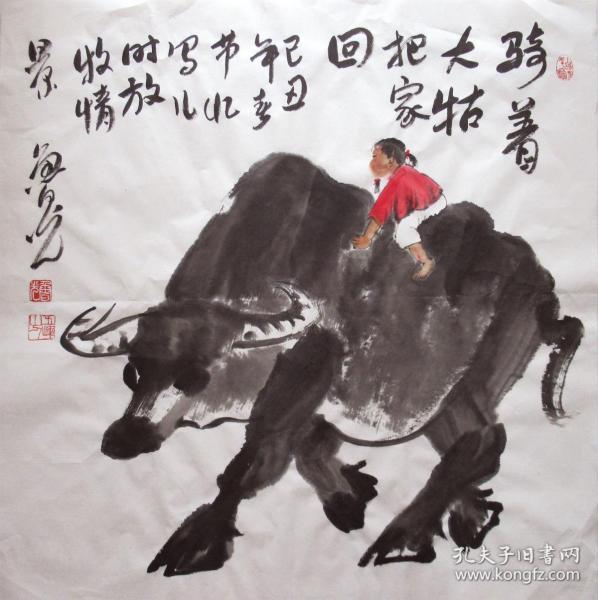 骑着
大牯
把家
回
己丑
年春
节忆
写儿
时放
牧情
景
鲁光
孔夫子旧书网
www.kongfz.com